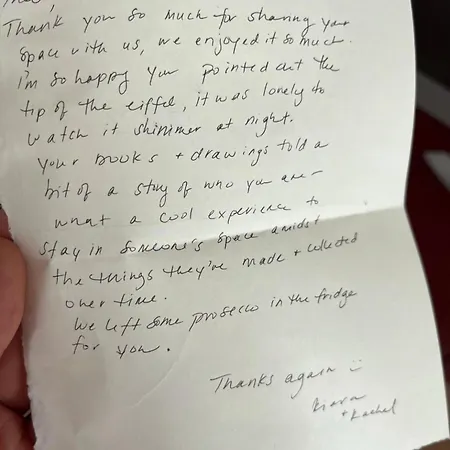 Thank you so much for sharing your
space with us, we enjoyed it so much.
I'm so happy you pointed out the
tip of the eiffel, it was lonely to
watch it shimmer at night.
Your books + drawings told a
bit of a stoy of who you are –
what a cool experience to
stay in someone's space amidst
the things they've made + collected
over time.
We left some prosecco in the fridge
for you.
Thanks again :)
Kiara
+ Rachel